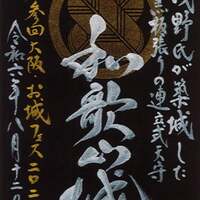 浅野氏が築城した
黒板張りの連立式天守
和歌山城
参回大阪お城フェス二〇二
令和六年八月十二日